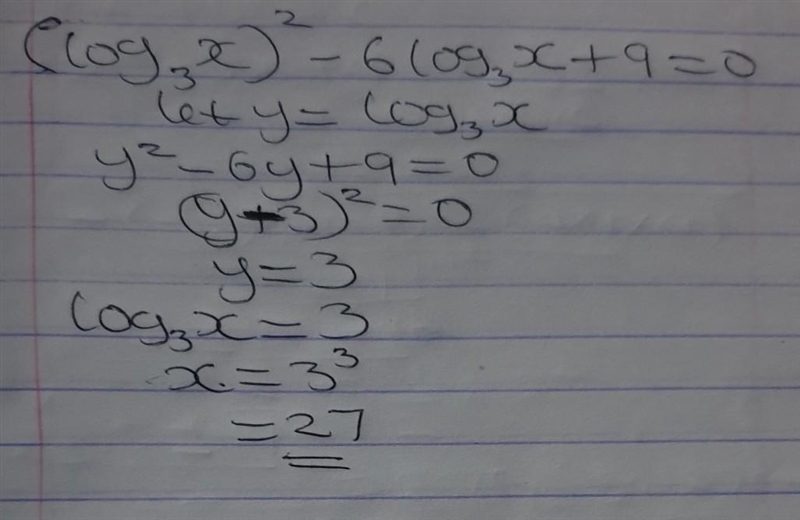 (log₃x)² - 6log₃x + 9 = 0
let y = log₃x
y² - 6y + 9 = 0
(y - 3)² = 0
y = 3
log₃x = 3
x = 3³
= 27